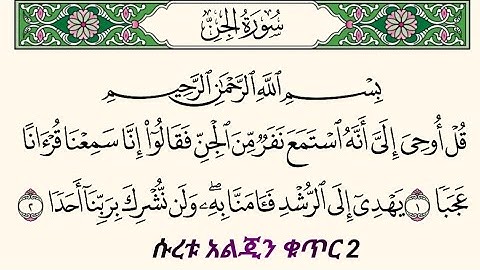 سُورَةُ الجِنِّ
بِسْمِ ٱللَّهِ ٱلرَّحْمَٰنِ ٱلرَّحِيمِ
قُلْ أُوحِىَ إِلَىَّ أَنَّهُ ٱسْتَمَعَ نَفَرٌ مِّنَ ٱلْجِنِّ فَقَالُوٓا۟ إِنَّا سَمِعْنَا قُرْءَانًا
عَجَبًا ١ يَهْدِىٓ إِلَى ٱلرُّشْدِ فَـَٔامَنَّا بِهِۦ ۖ وَلَن نُّشْرِكَ بِرَبِّنَآ أَحَدًا ٢
ሱረቱ አልጂን ቁጥር 2